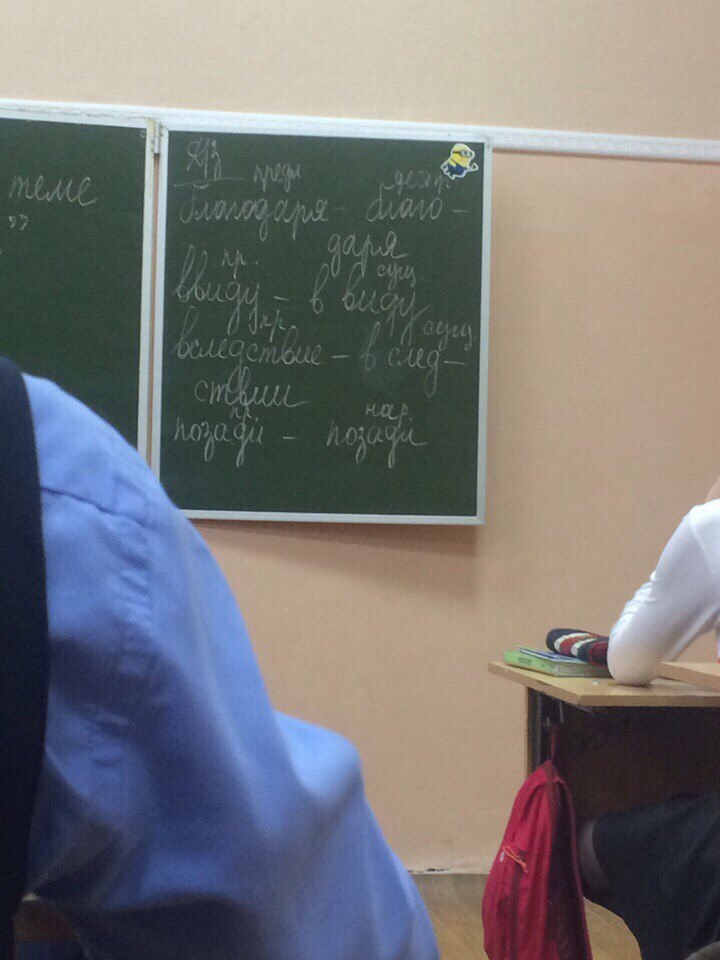 теме
»
Д/З
предл дееpr.
благодаря – благо-
даря
пр. сущ.
ввиду – в виду
пр. сущ.
вследствие – в след-
ствии
пр. нар.
позади – позади